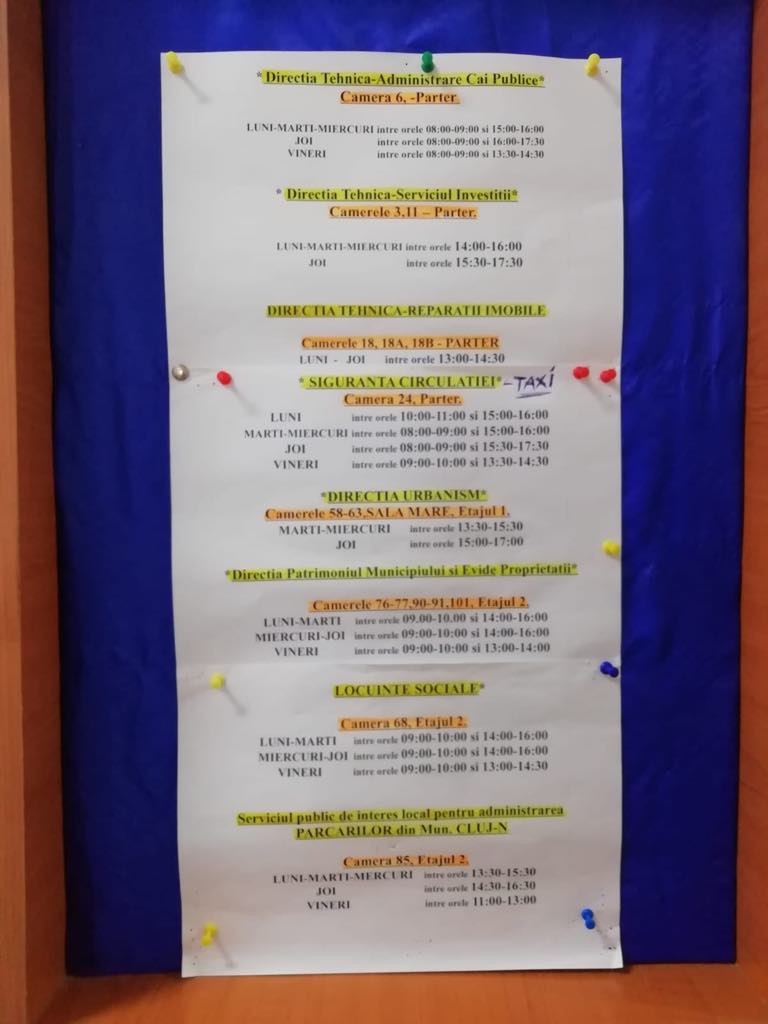 *Directia Tehnica-Administrare Cai Publice*
Camera 6, -Parter.
LUNI-MARTI-MIERCURI intre orele 08:00-09:00 si 15:00-16:00
JOI intre orele 08:00-09:00 si 16:00-17:30
VINERI intre orele 08:00-09:00 si 13:30-14:30
* Directia Tehnica-Serviciul Investitii*
Camerele 3,11 – Parter.
LUNI-MARTI-MIERCURI intre orele 14:00-16:00
JOI intre orele 15:30-17:30
DIRECTIA TEHNICA-REPARATII IMOBILE
Camerele 18, 18A, 18B - PARTER
LUNI - JOI intre orele 13:00-14:30
* SIGURANTA CIRCULATIEI* -TAXI
Camera 24, Parter.
LUNI intre orele 10:00-11:00 si 15:00-16:00
MARTI-MIERCURI intre orele 08:00-09:00 si 15:00-16:00
JOI intre orele 08:00-09:00 si 15:30-17:30
VINERI intre orele 09:00-10:00 si 13:30-14:30
*DIRECTIA URBANISM*
Camerele 58-63,SALA MARE, Etajul 1.
MARTI-MIERCURI intre orele 13:30-15:30
JOI intre orele 15:00-17:00
*Directia Patrimoniul Municipiului si Evide Proprietatii*
Camerele 76-77,90-91,101, Etajul 2.
LUNI-MARTI intre orele 09.00-10.00 si 14:00-16:00
MIERCURI-JOI intre orele 09:00-10:00 si 14:00-16:00
VINERI intre orele 09:00-10:00 si 13:00-14:00
LOCUINTE SOCIALE*
Camera 68, Etajul 2.
LUNI-MARTI intre orele 09:00-10:00 si 14:00-16:00
MIERCURI-JOI intre orele 09:00-10:00 si 14:00-16:00
VINERI intre orele 09:00-10:00 si 13:00-14:30
Serviciul public de interes local pentru administrarea
PARCARILOR din Mun. CLUJ-N
Camera 85, Etajul 2.
LUNI-MARTI-MERCURI intre orele 13:30-15:30
JOI intre orele 14:30-16:30
VINERI intre orele 11:00-13:00